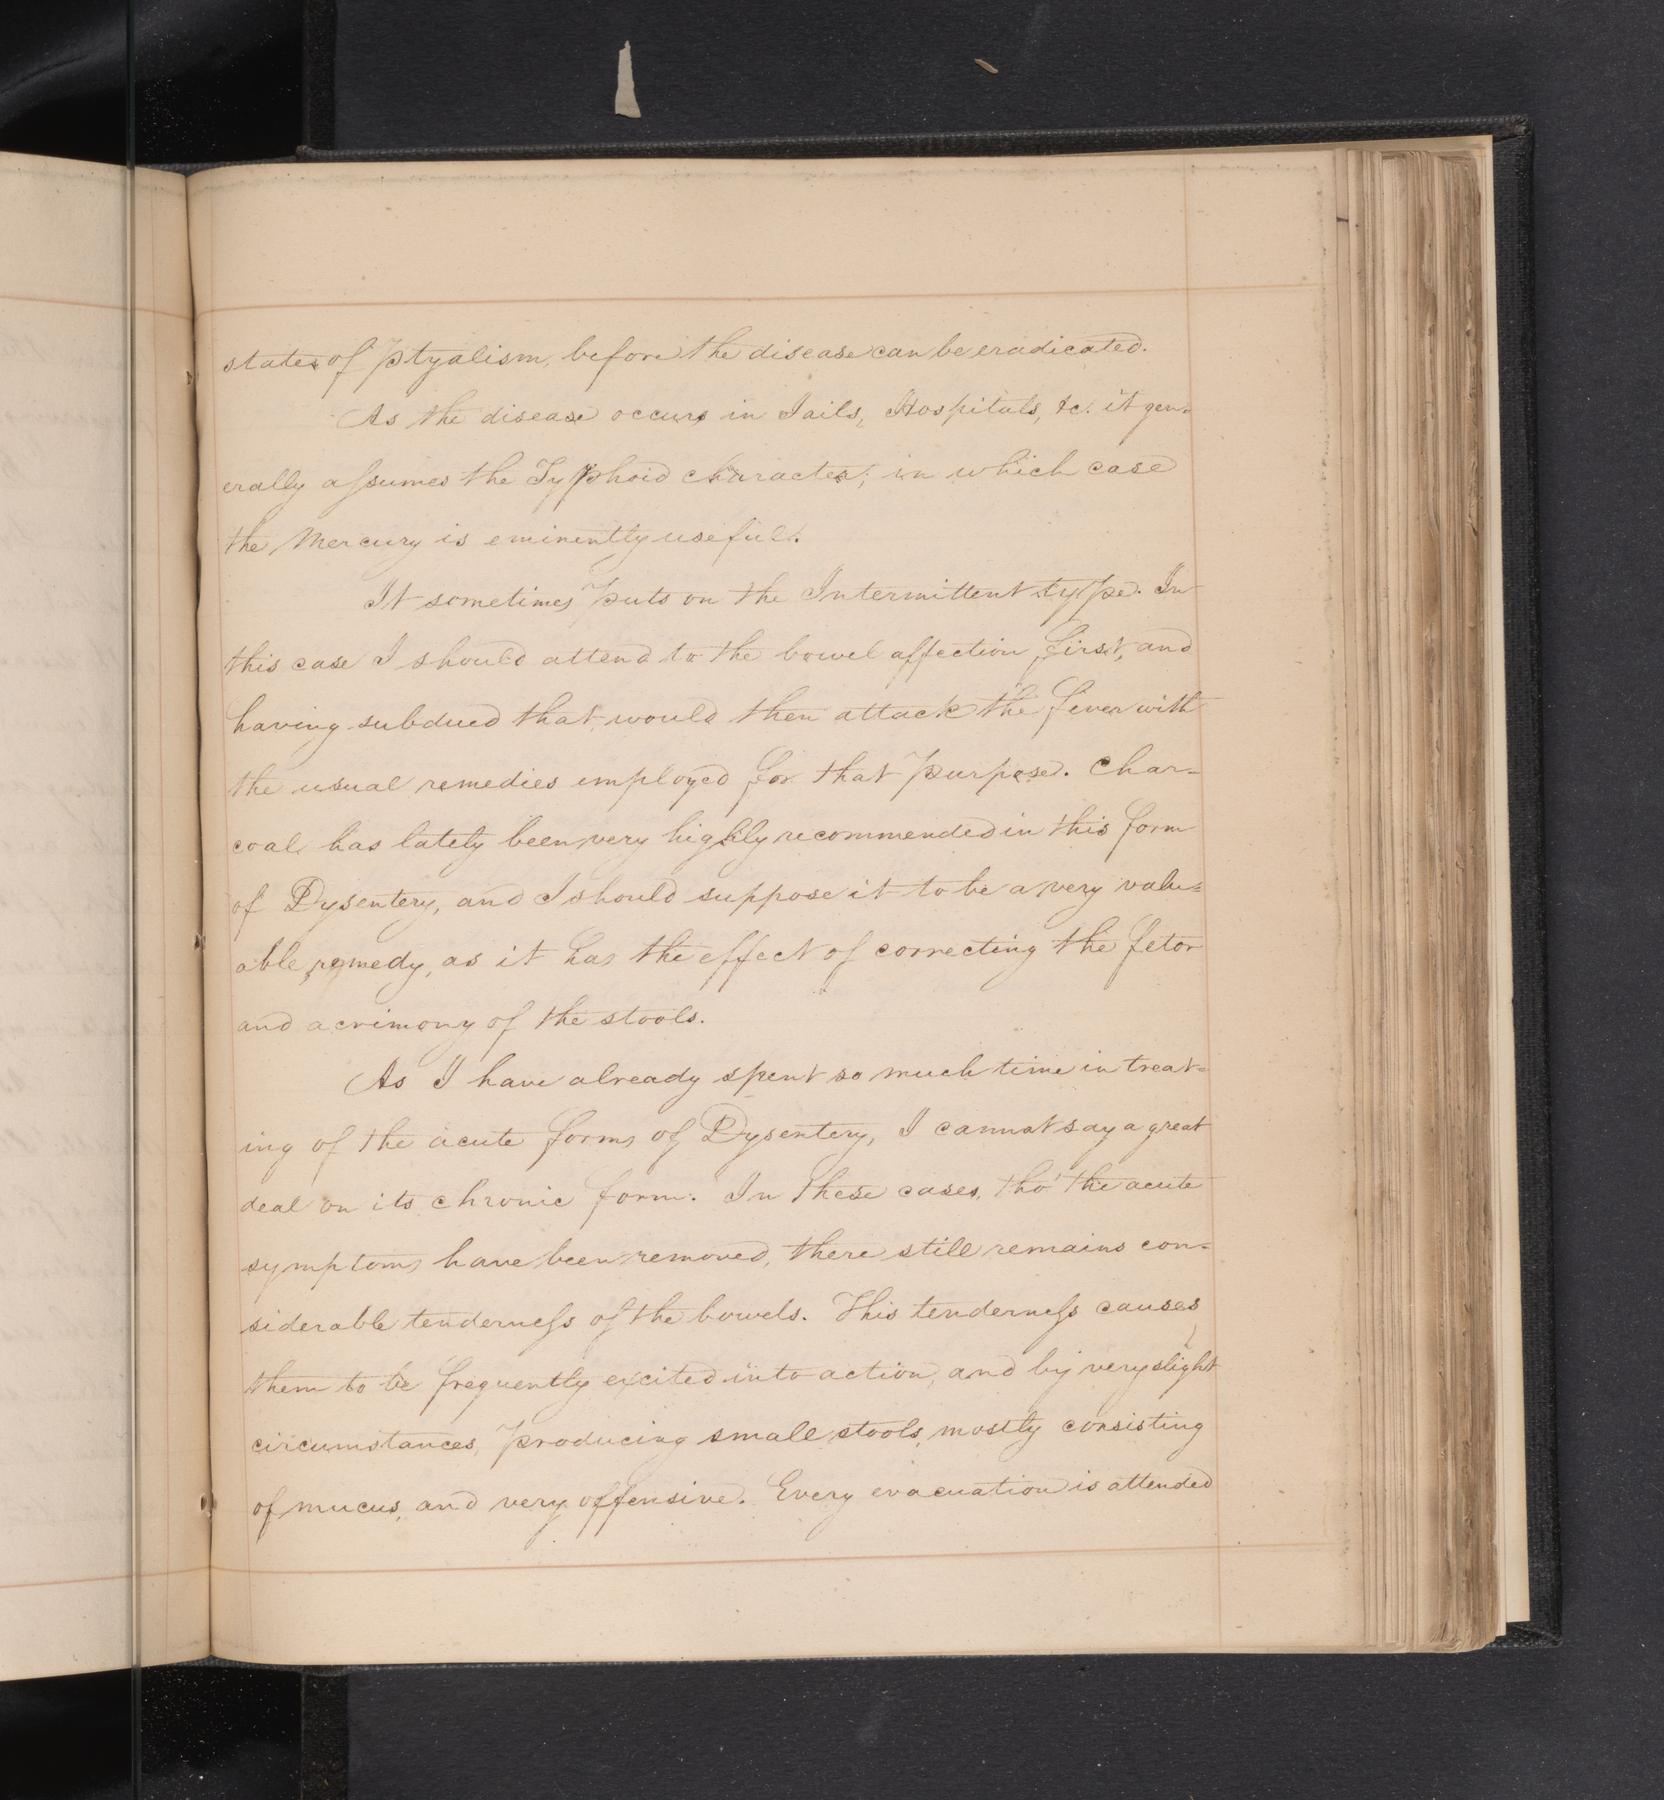 states of Ptyalism, before the disease can be eradicated.
As the disease occurs in Jails, Hospitals, &c. it gen-
erally assumes the Typhoid character; in which case
the Mercury is eminently useful.
It sometimes puts on the Intermittent type. In
this case I should attend to the bowel affection first, and
having subdued that, would then attack the fever with
the usual remedies employed for that purpose. Char-
coal has lately been very highly recommended in this form
of Dysentery, and I should suppose it to be a very valu-
able remedy, as it has the effect of correcting the fetor
and acrimony of the stools.
As I have already spent so much time in treat-
ing of the acute forms of Dysentery, I cannot say a great
deal on its chronic form. In these cases, tho' the acute
symptoms have been removed, there still remains con-
siderable tenderness of the bowels. This tenderness causes
them to be frequently excited into action, and by very slight
circumstances, producing small stools, mostly consisting
of mucus, and very offensive. Every evacuation is attended